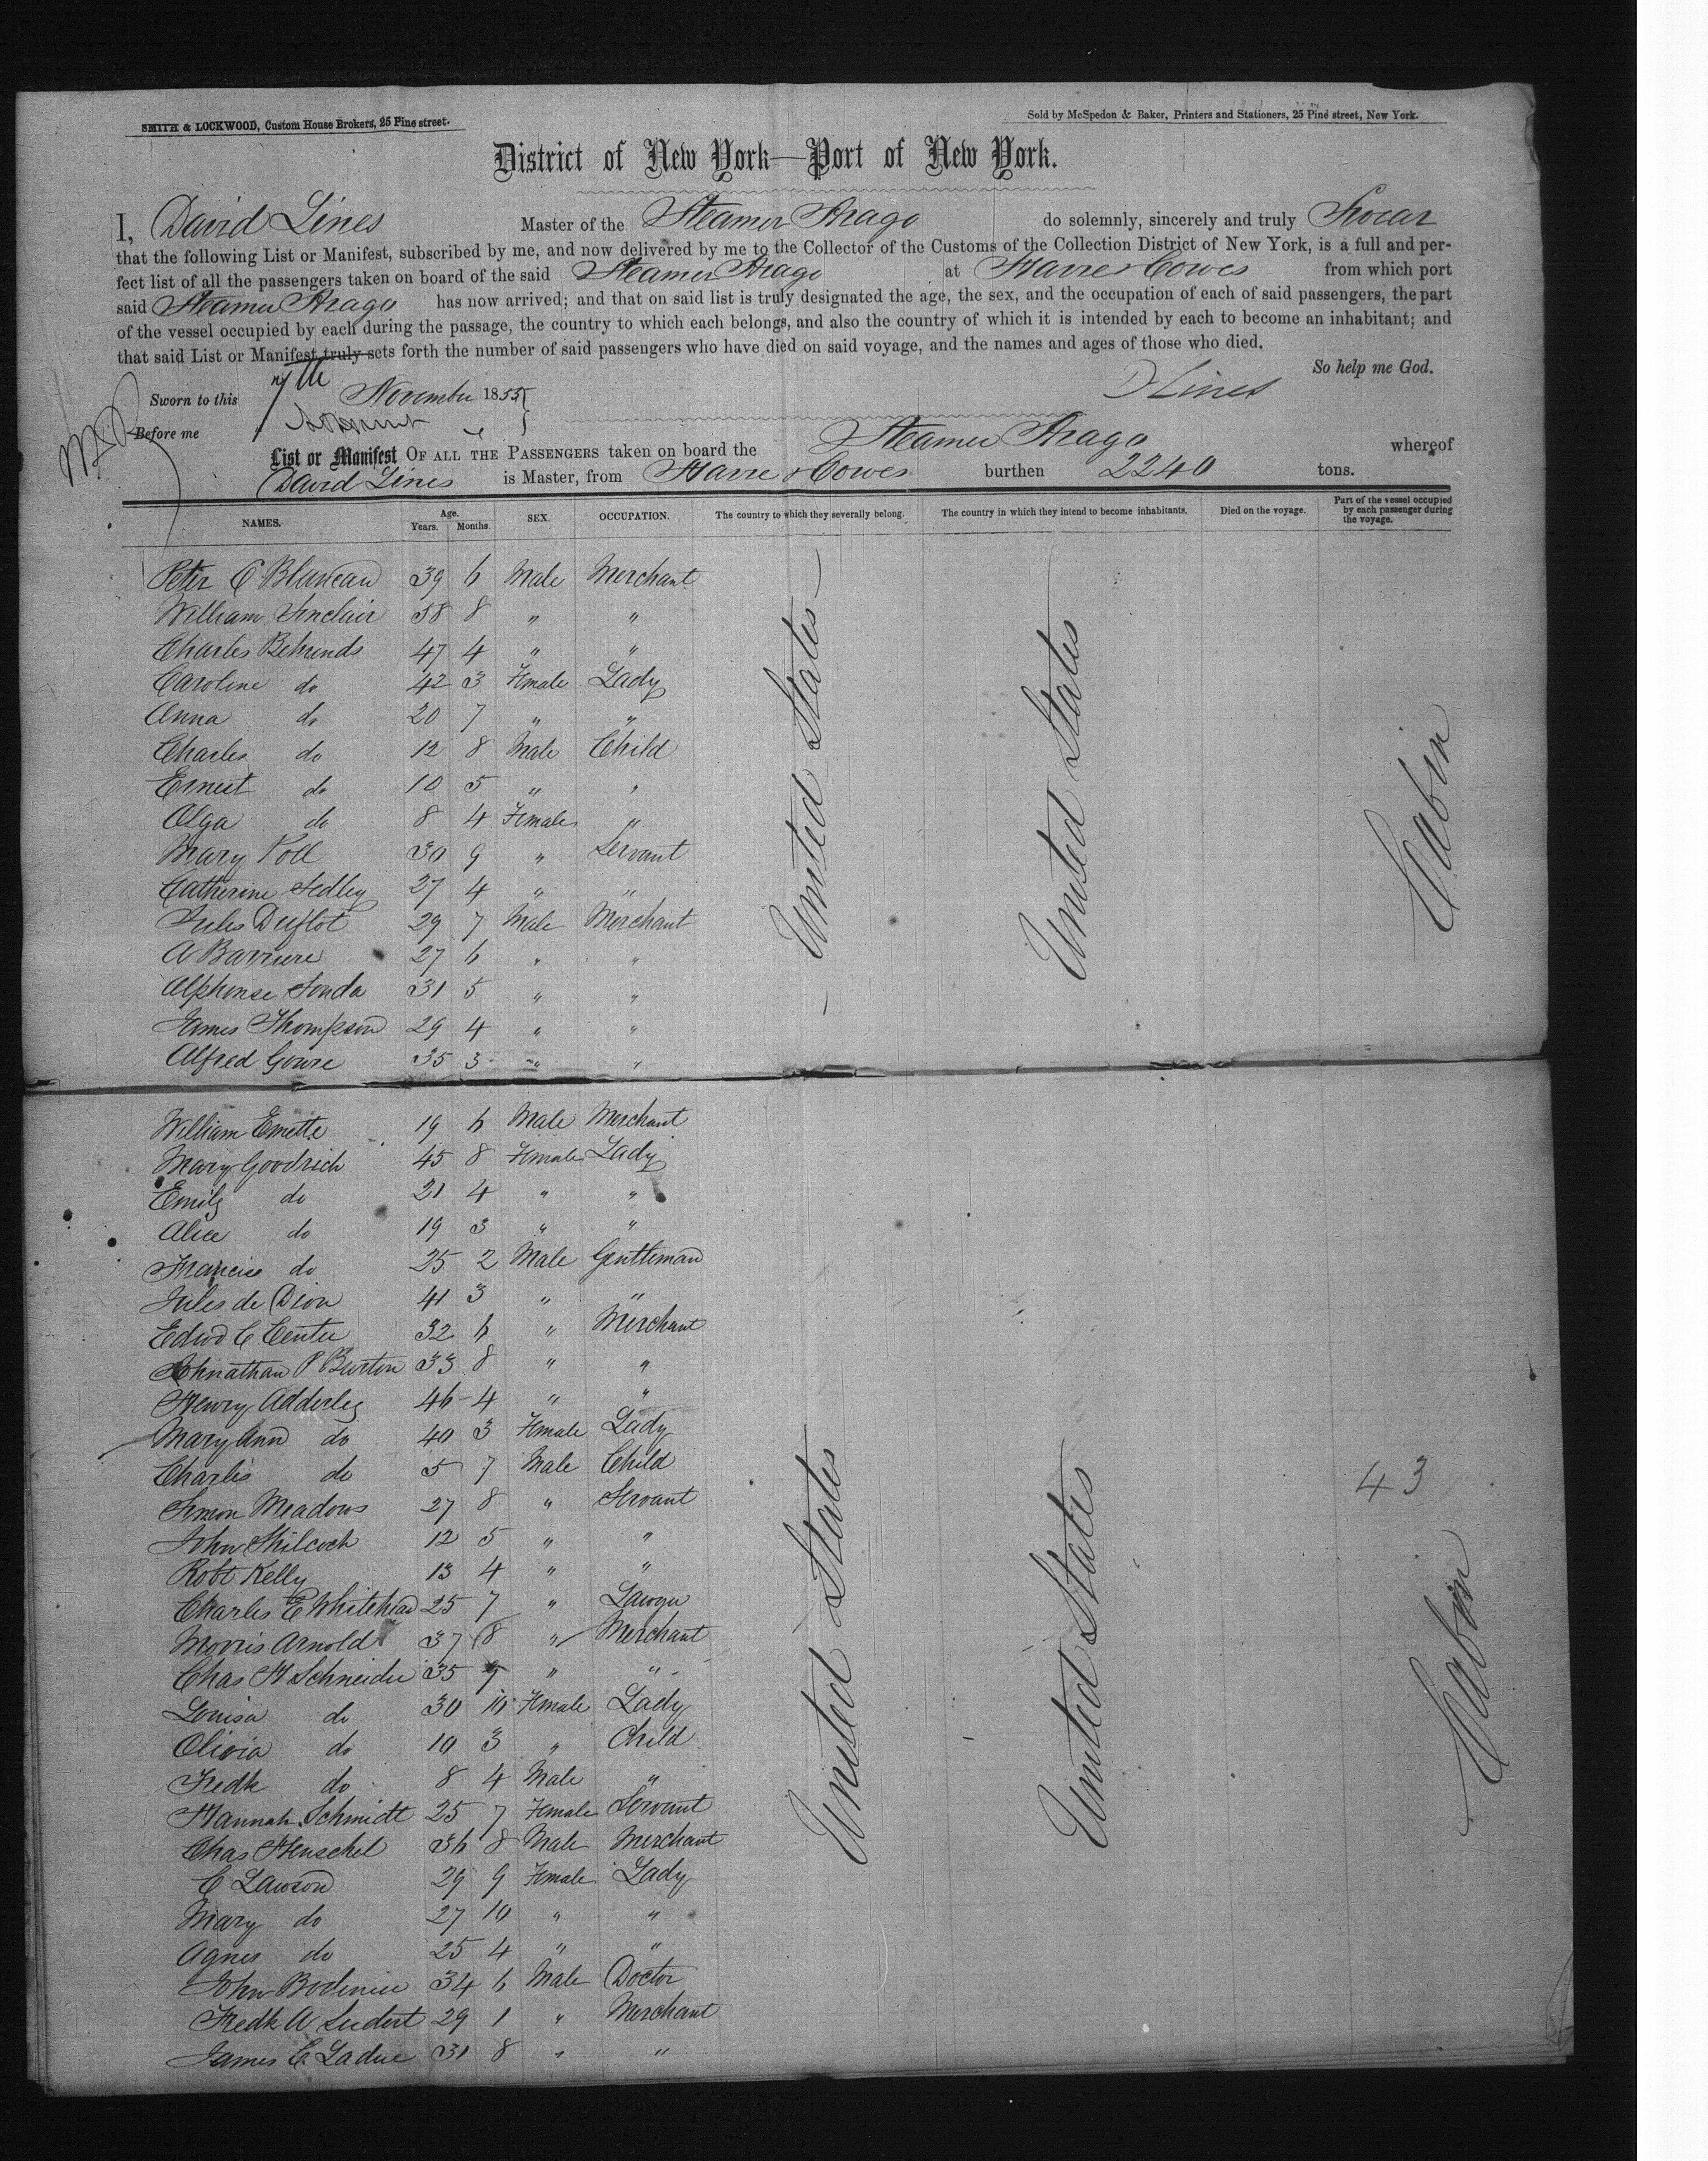 SMITH & LOCKWOOD, Custom House Brokers, 25 Pine street.
Sold by McSpedon & Baker, Printers and Stationers, 25 Pine street, New York.
District of New York—Port of New York.
I, David Lines Master of the Steamer Arago do solemnly, sincerely and truly Swear
that the following List or Manifest, subscribed by me, and now delivered by me to the Collector of the Customs of the Collection District of New York, is a full and per-
fect list of all the passengers taken on board of the said Steamer Arago at Havre & Cowes from which port
said Steamer Arago has now arrived; and that on said list is truly designated the age, the sex, and the occupation of each of said passengers, the part
of the vessel occupied by each during the passage, the country to which each belongs, and also the country of which it is intended by each to become an inhabitant; and
that said List or Manifest truly sets forth the number of said passengers who have died on said voyage, and the names and ages of those who died.
So help me God.
Sworn to this 7th November 1855 D Lines
Before me
List or Manifest OF ALL THE PASSENGERS taken on board the Steamer Arago whereof
David Lines is Master, from Havre & Cowes burthen 2240 tons.
NAMES. Age. Years. Months. SEX. OCCUPATION. The country to which they severally belong. The country in which they intend to become inhabitants. Died on the voyage. Part of the vessel occupied by each passenger during the voyage.
Peter C 39 6 Male Merchant
William Sinclair 38 8 " "
Charles Behrends 47 4 " "
Caroline do 42 3 Female Lady
Anna do 20 7 " "
Charles do 12 8 Male Child
Ernest do 10 5 " "
Olga do 8 4 Female "
Mary Poll 30 9 " Servant
Catherine Sedley 27 4 " "
Jules Duflot 29 7 Male Merchant
A Barriere 27 6 " "
Alphonse 31 5 " "
James Thompson 29 4 " "
Alfred 35 3 " "
United States
United States
Cabin
William Emette 19 6 Male Merchant
Mary Goodrich 45 8 Female Lady
Emily do 21 4 " "
Alice do 19 3 " "
Francis do 25 2 Male Gentleman
Jules de Dion 41 3 " "
Edwd C Center 32 6 " Merchant
Johnathan P Burton 33 8 " "
Henry Adderley 46 4 " "
Mary Ann do 40 3 Female Lady
Charles do 5 7 Male Child
Simon Meadows 27 8 " Servant
John 12 5 " "
Robt Kelly 13 4 " "
Charles E Whitehead 25 7 " Lawyer
Morris Arnold 37 8 " Merchant
Chas H Schneider 35 9 " "
Louisa do 30 10 Female Lady
Olivia do 10 3 " Child
Fredk do 8 4 Male "
Hannah Schmidt 25 7 Female Servant
Chas Henschel 36 8 Male Merchant
C Lawson 29 9 Female Lady
Mary do 27 10 " "
Agnes do 25 4 " "
John Bodinier 34 6 Male Doctor
Fredk A 29 1 " Merchant
James E Ladue 31 8 " "
United States
United States
43
Cabin